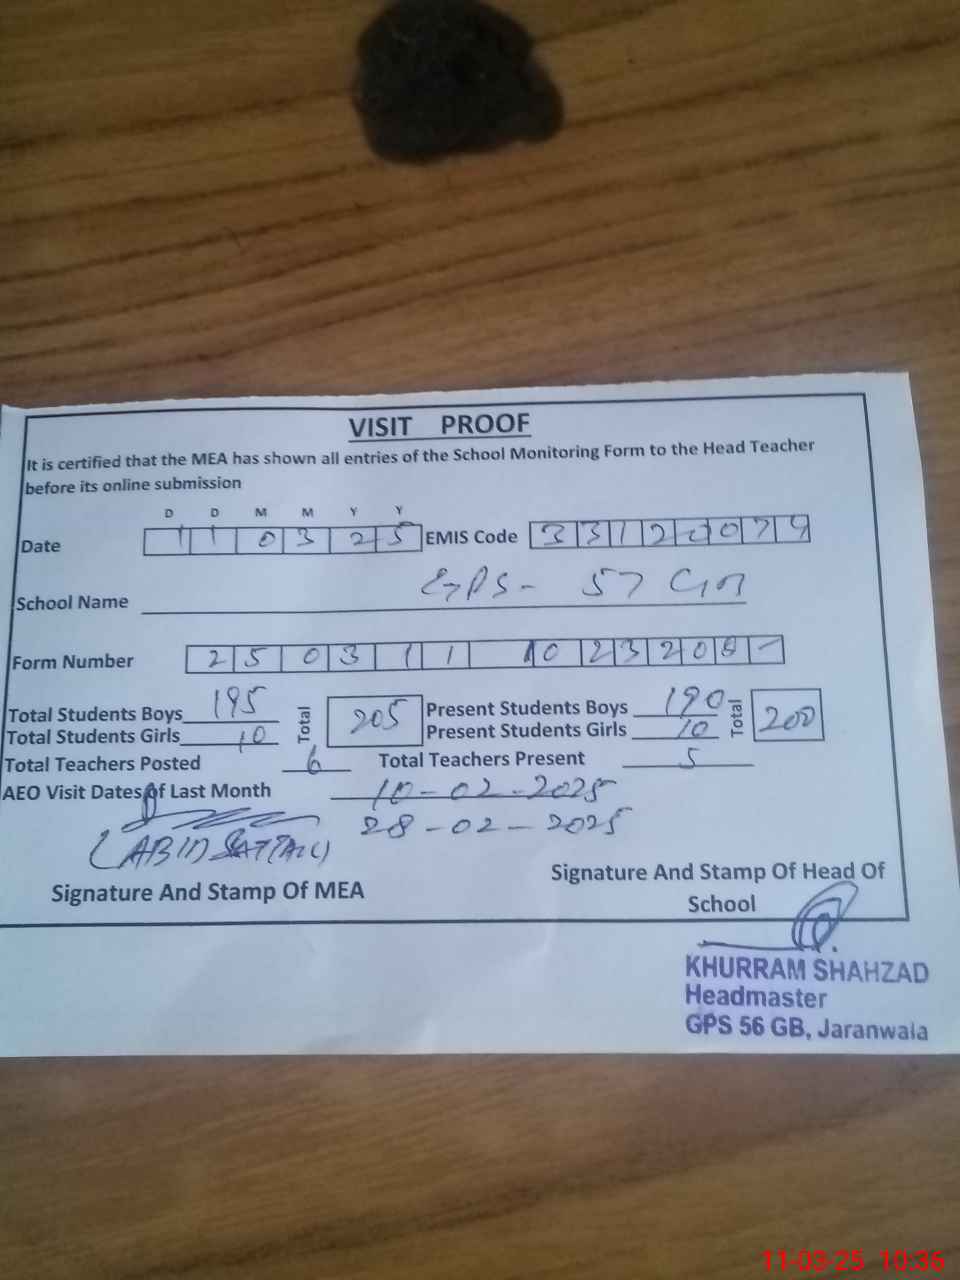 VISIT PROOF
It is certified that the MEA has shown all entries of the School Monitoring Form to the Head Teacher
before its online submission
D D M M Y Y
Date 1 1 0 3 2 5 EMIS Code 3 3 1 2 0 0 7 4
School Name GPS - 57 GB
Form Number 2 5 0 3 1 1 1 0 2 3 2 0
Total Students Boys 195 Total 205 Present Students Boys 190 Total 200
Total Students Girls 10 Present Students Girls 10
Total Teachers Posted 6 Total Teachers Present 5
AEO Visit Dates of Last Month 10-02-2025
28-02-2025
(ABID
Signature And Stamp Of MEA
Signature And Stamp Of Head Of
School
KHURRAM SHAHZAD
Headmaster
GPS 56 GB, Jaranwala
11-03-25 10:36